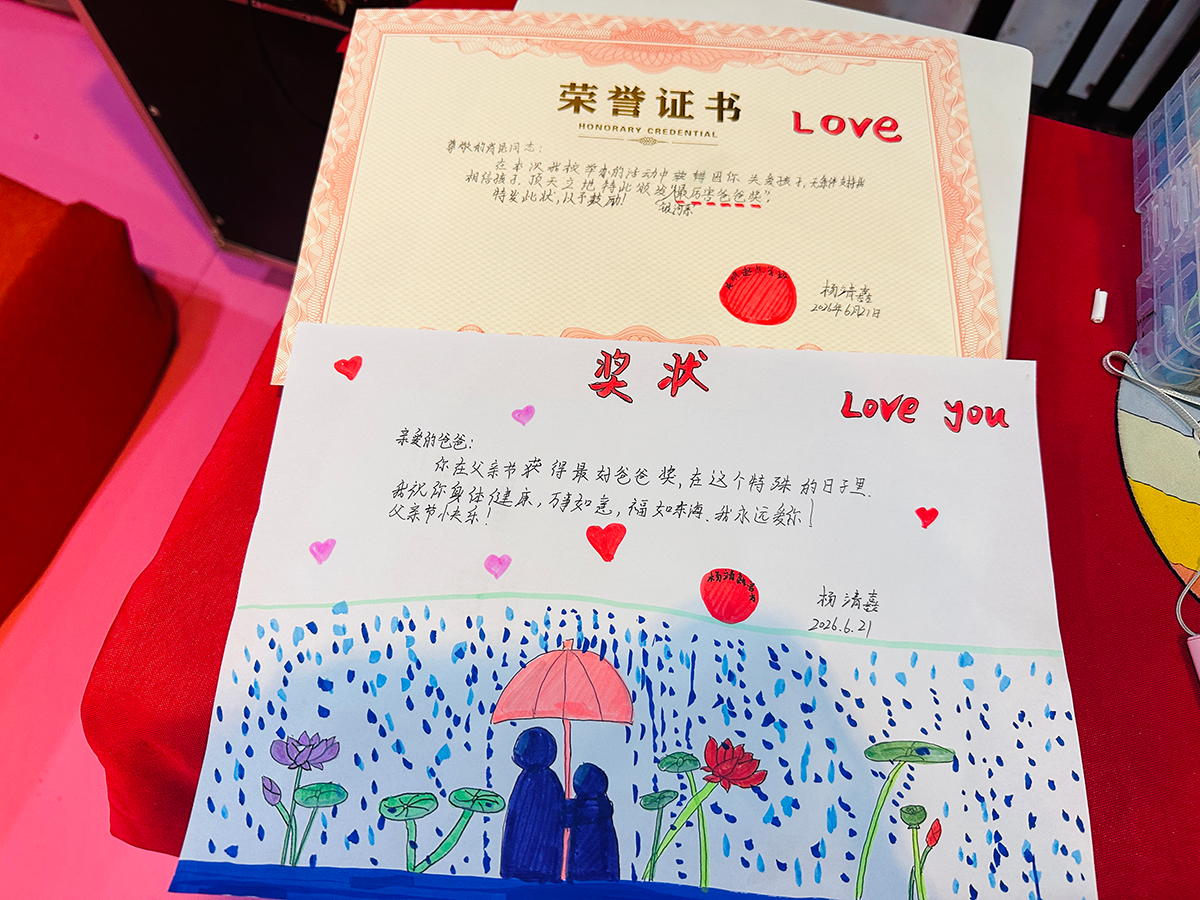 荣誉证书
HONORARY CREDENTIAL
Love
尊敬的 同志:
在本次我校举办的活动中 因你关爱孩子,无条件支持
相信孩子,顶天立地,特此颁发"最厉害爸爸奖",
"银河系"
特发此状,以予鼓励!
杨清鑫
2026年6月21日
奖状
Love you
亲爱的爸爸:
你在父亲节获得最好爸爸奖,在这个特殊的日子里.
我祝你身体健康,万事如意,福如东海.我永远爱你!
父亲节快乐!
杨清
杨清鑫
2026.6.21